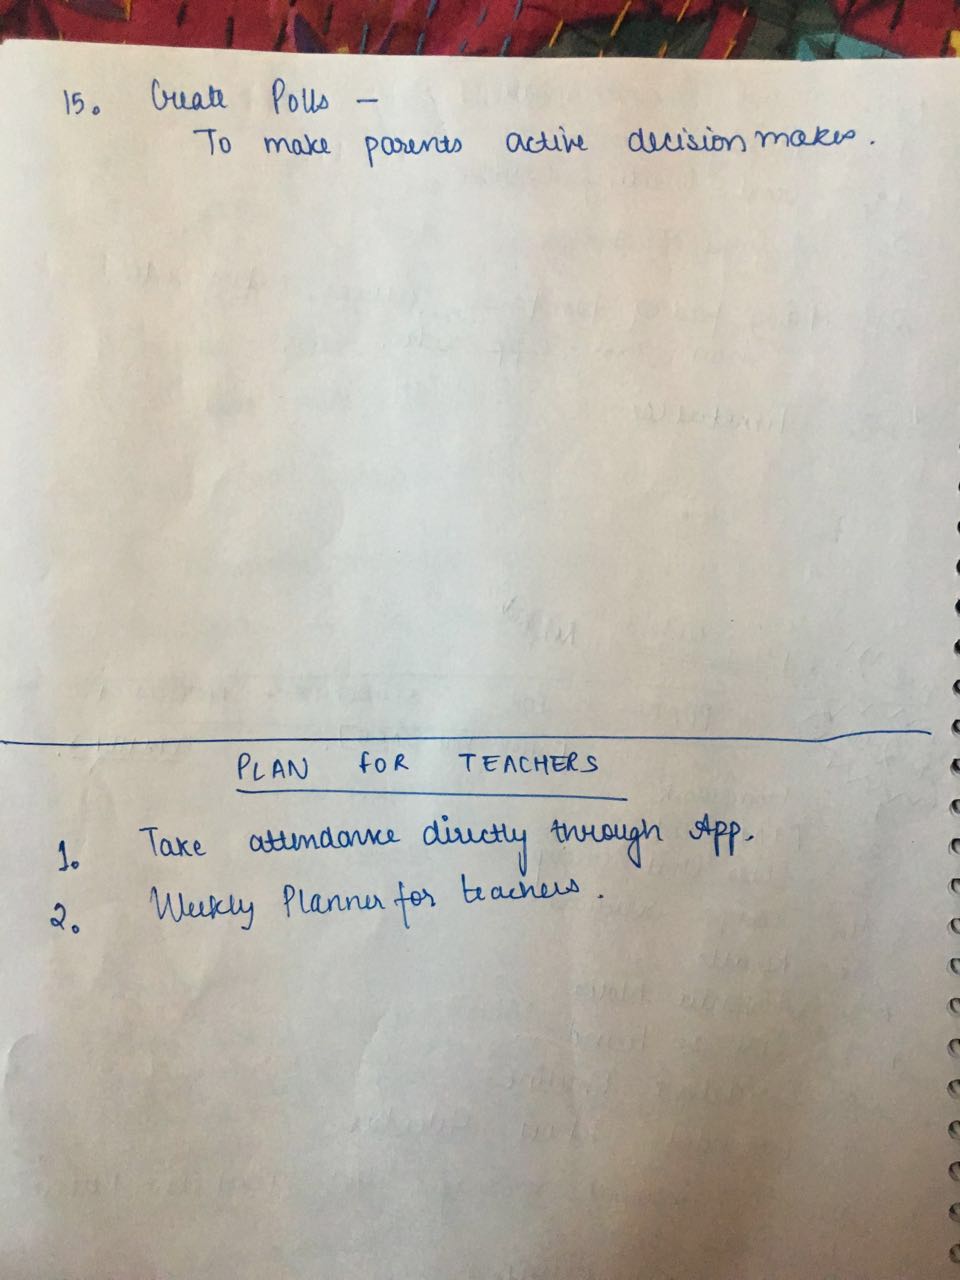 15. Create Polls -
To make parents active decision makers.
PLAN FOR TEACHERS
1. Take attendance directly through App.
2. Weekly Planner for teachers.